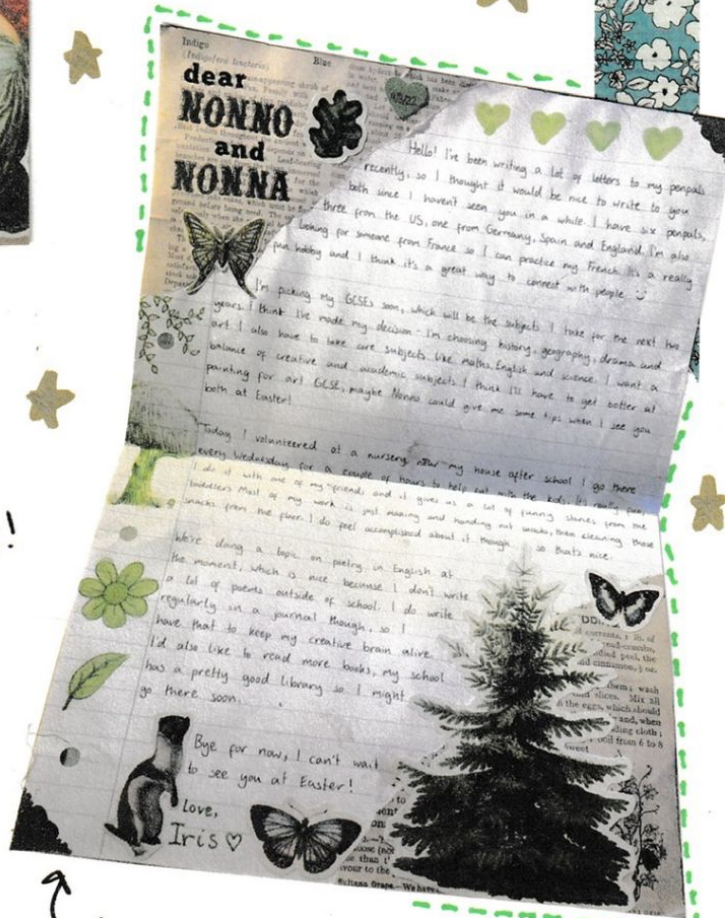 Indigo
Blue
dear
NONNO
and
NONNA
Hello! I've been writing a lot of letters to my penpals
recently, so I thought it would be nice to write to you
both since I haven't seen you in a while. I have six penpals,
three from the US, one from Germany, Spain and England. I'm also
looking for someone from France so I can practice my French. It's a really
fun hobby and I think it's a great way to connect with people :)
I'm picking my GCSEs soon, which will be the subjects I take for the next two
years. I think I've made my decision - I'm choosing history, geography, drama and
art. I also have to take core subjects like maths, English and science. I want a
balance of creative and academic subjects. I think I'll have to get better at
painting for art GCSE, maybe Nonno could give me some tips when I see you
both at Easter!
Today I volunteered at a nursery near my house after school. I go there
every Wednesday for a couple of hours to help out with the kids. It's really fun,
I do it with one of my friends and it gives us a lot of funny stories from the
toddlers. Most of my work is just making and handing out snacks, then cleaning those
snacks from the floor. I do feel accomplished about it though so that's nice.
We're doing a topic on poetry in English at
the moment, which is nice because I don't write
a lot of poems outside of school. I do write
regularly in a journal though, so I
have that to keep my creative brain alive.
I'd also like to read more books, my school
has a pretty good library so I might
go there soon.
Bye for now, I can't wait
to see you at Easter!
Love,
Iris ♡
!